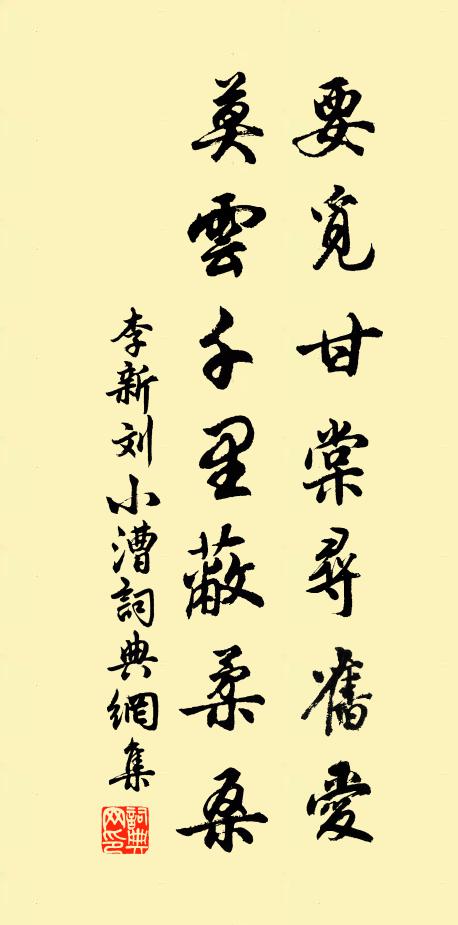 要覓甘棠尋舊愛
莫雲千里蔽柔桑
李新刘小漕詞典網集
詞典网印